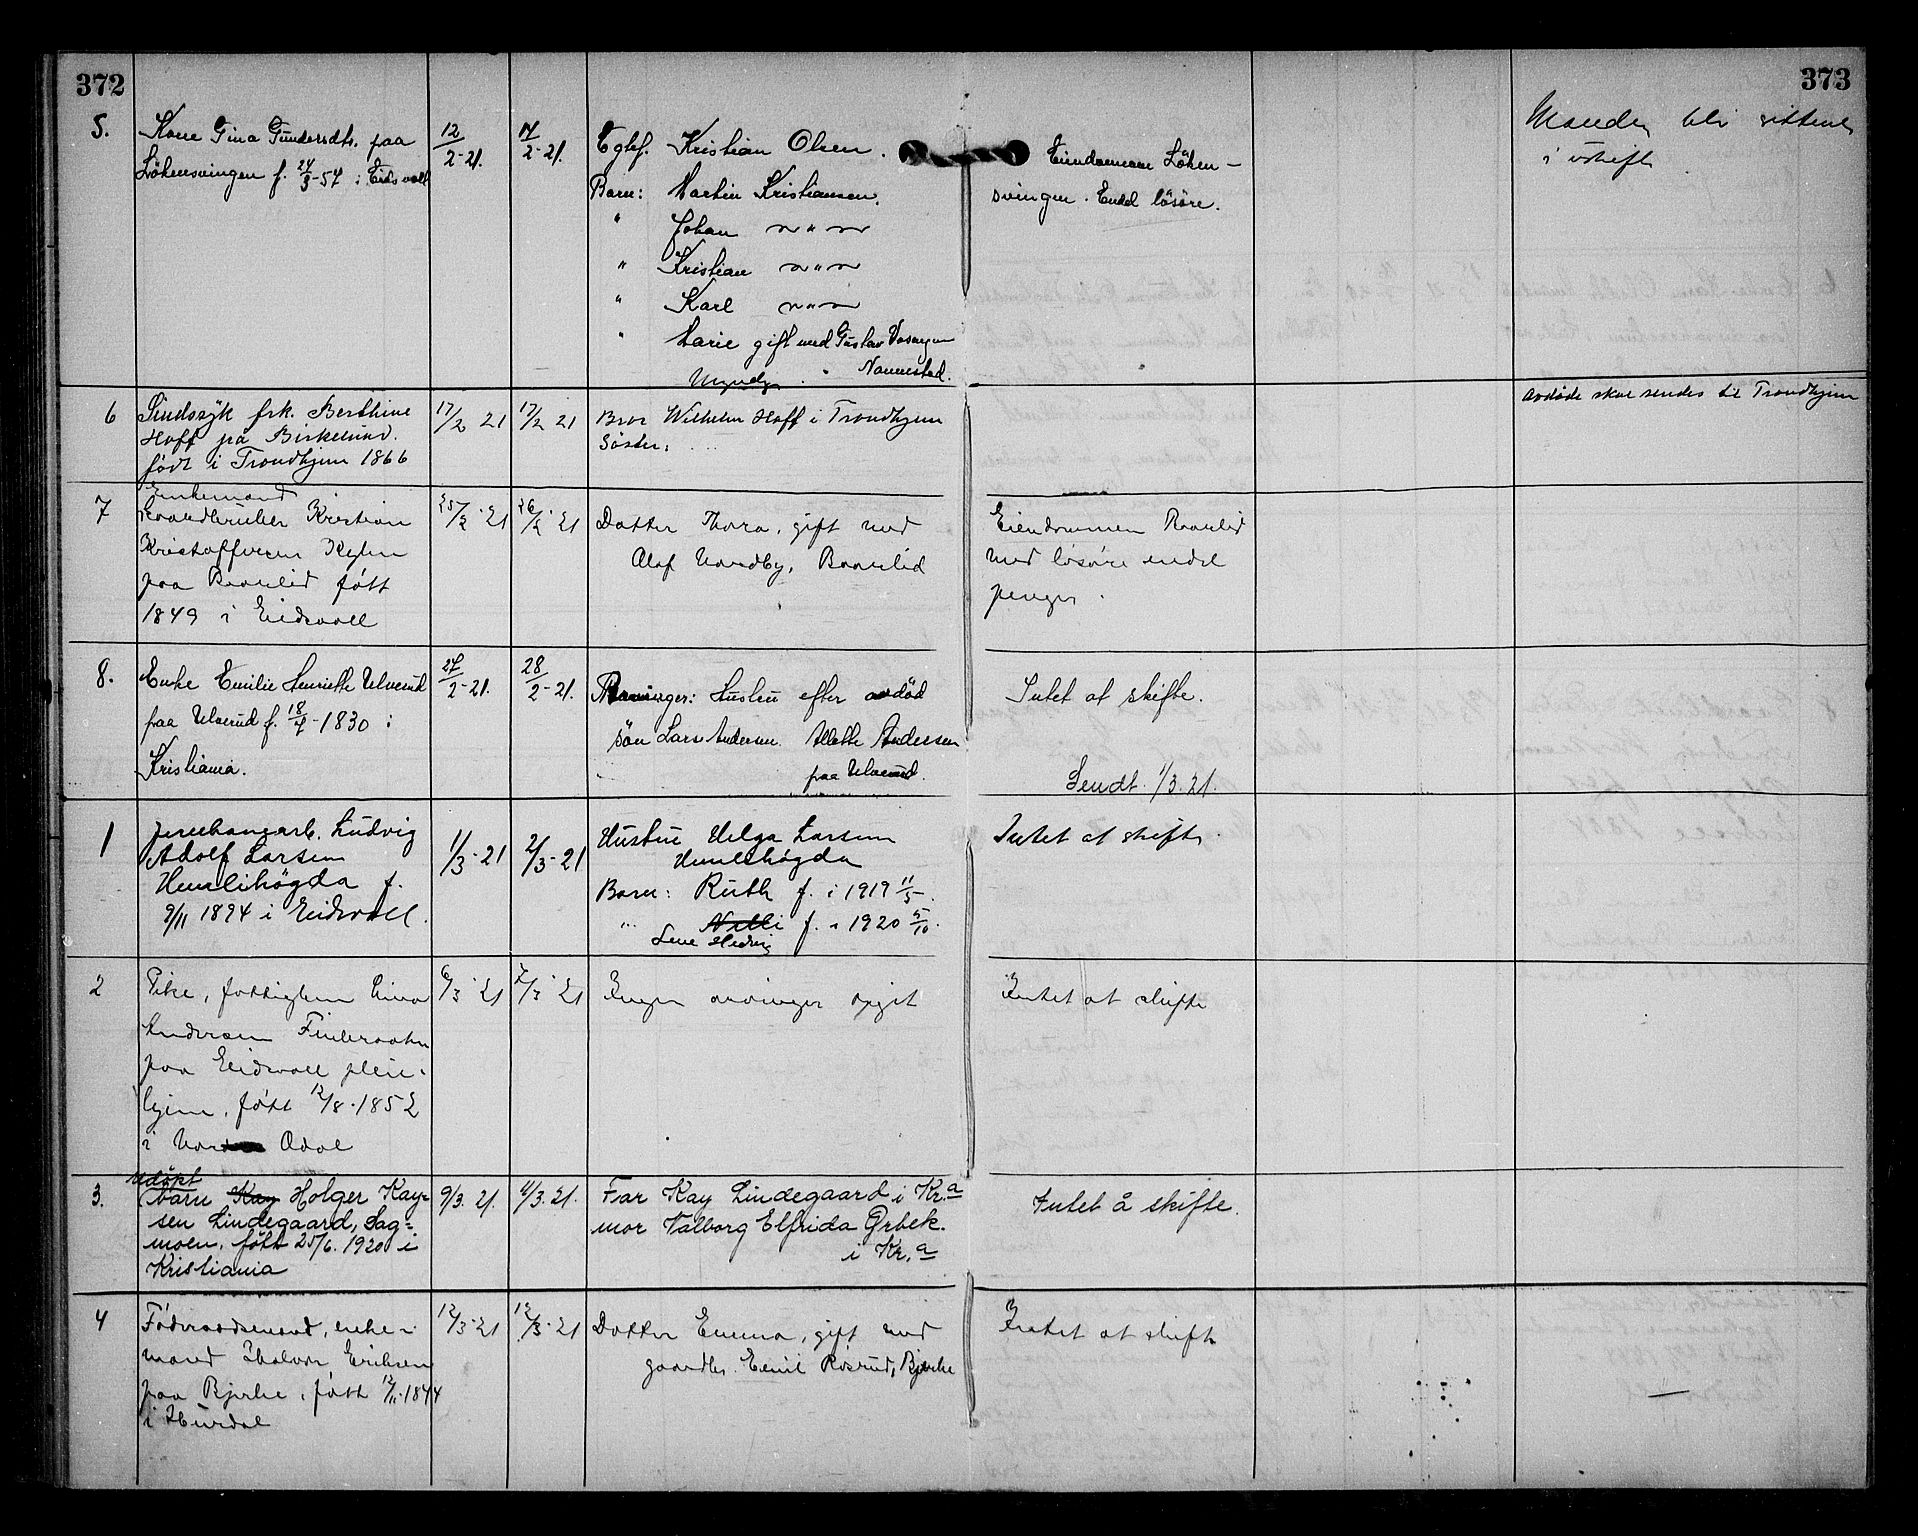 372
373
5.
Kone Gina Gundersdtr. paa
Lökensvingen f. 24/3-54 i Eidsvoll
12/2-21.
14/2-21.
Egtef. Kristian Olsen.
Barn: Martin Kristiansen.
" Johan — " —
" Kristian — " —
" Karl — " —
" Marie gift med Gustav
Nannestad.
Myndige.
Eiendommen Löken-
svingen. Endel lösöre.
Manden blir sittende
i uskifte
6
Sindssyk frk. Berthine
Hoff på Birkelund.
født i Trondhjem 1866
17/2 21
17/2 21
Bror Wilhelm Hoff i Trondhjem
Søster:
avdøde skal sendes til Trondhjem
7
Enkemand
Gaardbruker Kristian
Kristoffersen
paa født
1849 i Eidsvoll
25/2-21
26/2-21
Datter Thora, gift med
Olaf Nordby,
Eiendommen
med løsøre endel
penger.
8.
Enke Emilie Henriette Ulverud
paa Ulverud f. 18/4-1830 i
Kristiania.
27/2-21.
28/2-21.
Arvinger: Hustru efter avdöd
sön Lars Andersen. Alette Andersen
paa Ulverud.
Intet at skifte.
Sendt 1/3.21.
1
Jernbanearb. Ludvig
Adolf Larsen
Humlehögda f.
9/11 1894 i Eidsvoll.
1/3-21
2/3-21
Hustru Helga Larsen
Humlehögda
Barn: Ruth f. i 1919 11/5.
" Nelli f. i 1920 5/10.
Lene Hedvig
Intet at skifte.
2
Pike, fattiglem Lina
Andersen
paa Eidsvoll pleie-
hjem, født 12/8-1852
i Nord Odal
6/3-21
7/3-21
Ingen arvinger opgit
Intet at skifte
3.
udöpt
barn Kay Holger Kay=
sen Lindegaard, Sag=
moen, født 25/6. 1920 i
Kristiania
9/3. 21.
11/3. 21.
Far Kay Lindegaard i Kr.a
mor Valborg Elfrida Ørbek.
i Kr.a
Intet å skifte.
4
Föderaadsmand, enke-
mand Halvor Eriksen
paa Bjerke, født 12/11-1844
i Hurdal
12/3-21
12/3-21
Datter Emma, gift med
gaardbr. Emil Rösrud, Bjerke
Intet at skifte
—